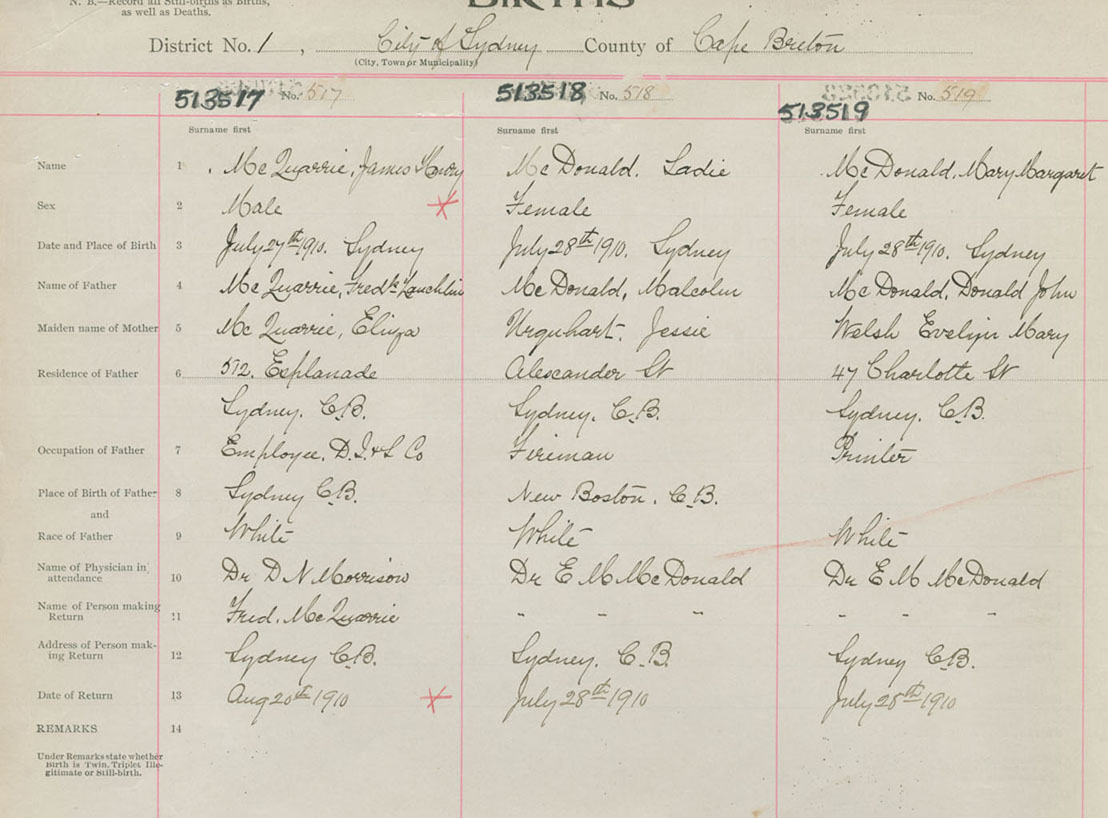 N. B.—Record all Still-births as Births,
as well as Deaths.
BIRTHS
District No. 1, City of Sydney County of Cape Breton
(City, Town or Municipality)
513517 No. 517 513518 No. 518 513519 No. 519
Surname first Surname first Surname first
Name 1 McQuarrie, James Henry McDonald, Sadie McDonald, Mary Margaret
Sex 2 Male Female Female
Date and Place of Birth 3 July 27th 1910. Sydney July 28th 1910. Sydney July 28th 1910. Sydney
Name of Father 4 McQuarrie, Fredk Lauchlin McDonald, Malcolm McDonald, Donald John
Maiden name of Mother 5 McQuarrie, Eliza Urquhart, Jessie Welsh Evelyn Mary
Residence of Father 6 572. Esplanade Alexander St 47 Charlotte St
Sydney. C.B. Sydney. C.B. Sydney. C.B.
Occupation of Father 7 Employee, D.I.&S Co Fireman Printer
Place of Birth of Father 8 Sydney C.B. New Boston. C.B.
and
Race of Father 9 White White White
Name of Physician in
attendance 10 Dr D N Morrison Dr E M McDonald Dr E M McDonald
Name of Person making
Return 11 Fred. McQuarrie " " " " " "
Address of Person mak-
ing Return 12 Sydney C.B. Sydney. C.B. Sydney C.B.
Date of Return 13 Aug 20th 1910 July 28th 1910 July 28th 1910
REMARKS 14
Under Remarks state whether
Birth is Twin, Triplet Ille-
gitimate or Still-birth.